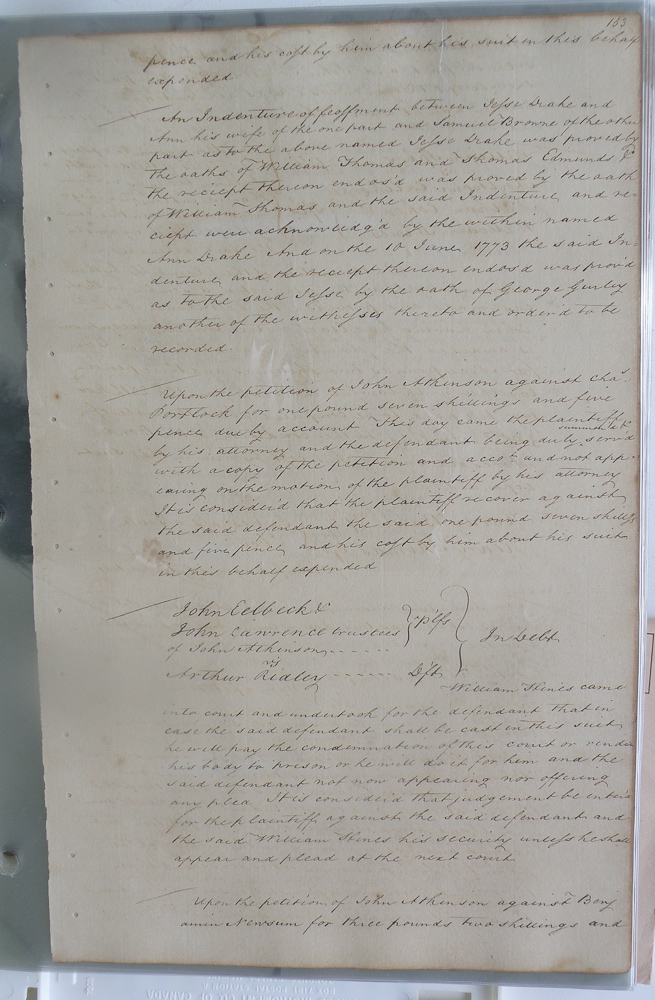 163
pence and his cost by him about his suit in this behalf
expended
An Indenture of feoffment between Jesse Drake and
Ann his wife of the one part and Samuel Browne of the other
part as to the above named Jesse Drake was proved by
the oaths of William Thomas and Thomas Edmunds &
the reciept thereon endos'd was proved by the oath
of William Thomas and the said Indenture and re-
ciept were acknowledg'd by the within named
Ann Drake And on the 10 June 1773 the said In-
denture and the reciept thereon endos'd was prov'd
as to the said Jesse by the oath of George Gurley
another of the witnesses thereto and orderd to be
recorded
Upon the petition of John Atkinson against Chas.
Portlock for one pound seven shillings and five
pence due by account This day came the plaintiff
by his attorney and the defendant being duly summoned & serv'd
with a copy of the petition and accot. and not app-
earing on the motion of the plaintiff by his attorney
It is consider'd that the plaintiff recover against
the said defendant the said one pound seven shillgs
and five pence and his cost by him about his suit
in this behalf expended
John Eelbeck &
John Lawrence trustees
of John Atkinson
Plfs
In Debt
vs
Arthur Ridley Dft
William Hines came
into court and undertook for the defendant that in
case the said defendant shall be cast in this suit
he will pay the condemnation of this court or render
his body to prison or he will do it for him and the
said defendant not now appearing nor offering
any plea It is consider'd that judgement be enter'd
for the plaintiffs against the said defendant and
the said William Hines his security unless he shall
appear and plead at the next court
Upon the petition of John Atkinson against Benj
amin Newsum for three pounds two shillings and
CO OF CANADA